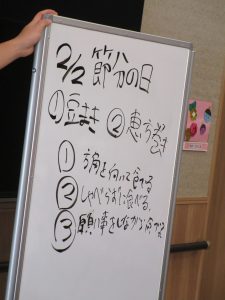 2/2 節分の日
①豆まき ②恵方巻
①方角を向いて食べる
②しゃべらずに食べる。
③願い事をしながら食べる